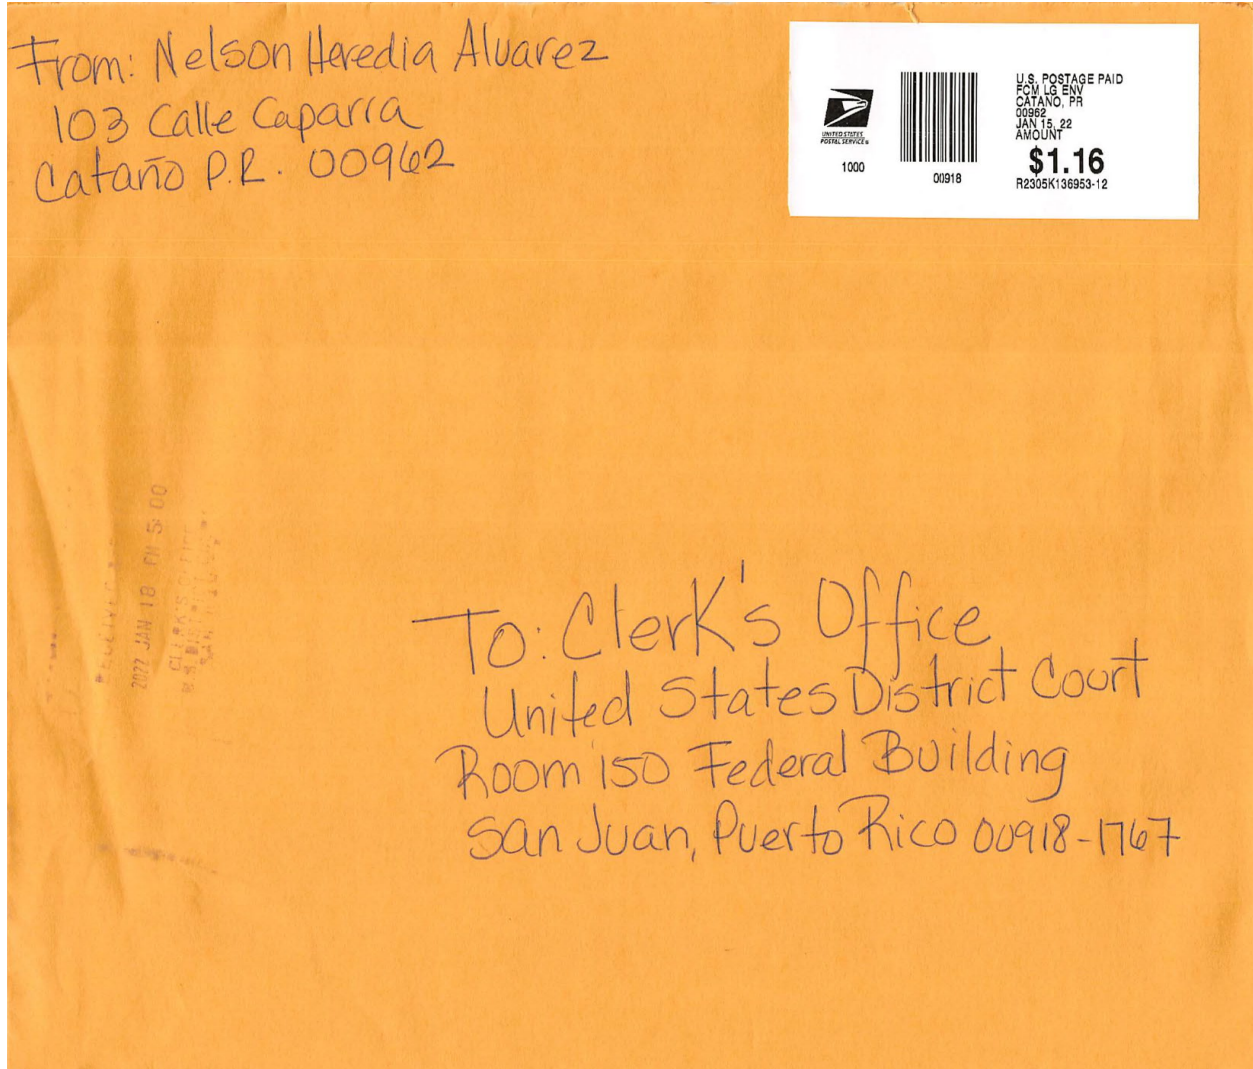 From: Nelson Heredia Alvarez
103 Calle Caparra
Cataño P.R. 00962
UNITED STATES
POSTAL SERVICE®
1000
00918
U.S. POSTAGE PAID
FCM LG ENV
CATANO, PR
00962
JAN 15, 22
AMOUNT
$1.16
R2305K136953-12
RECEIVED
2022 JAN 18 PM 5:00
CLERK'S OFFICE
U.S. DISTRICT COURT
To: Clerk's Office
United States District Court
Room 150 Federal Building
San Juan, Puerto Rico 00918-1767